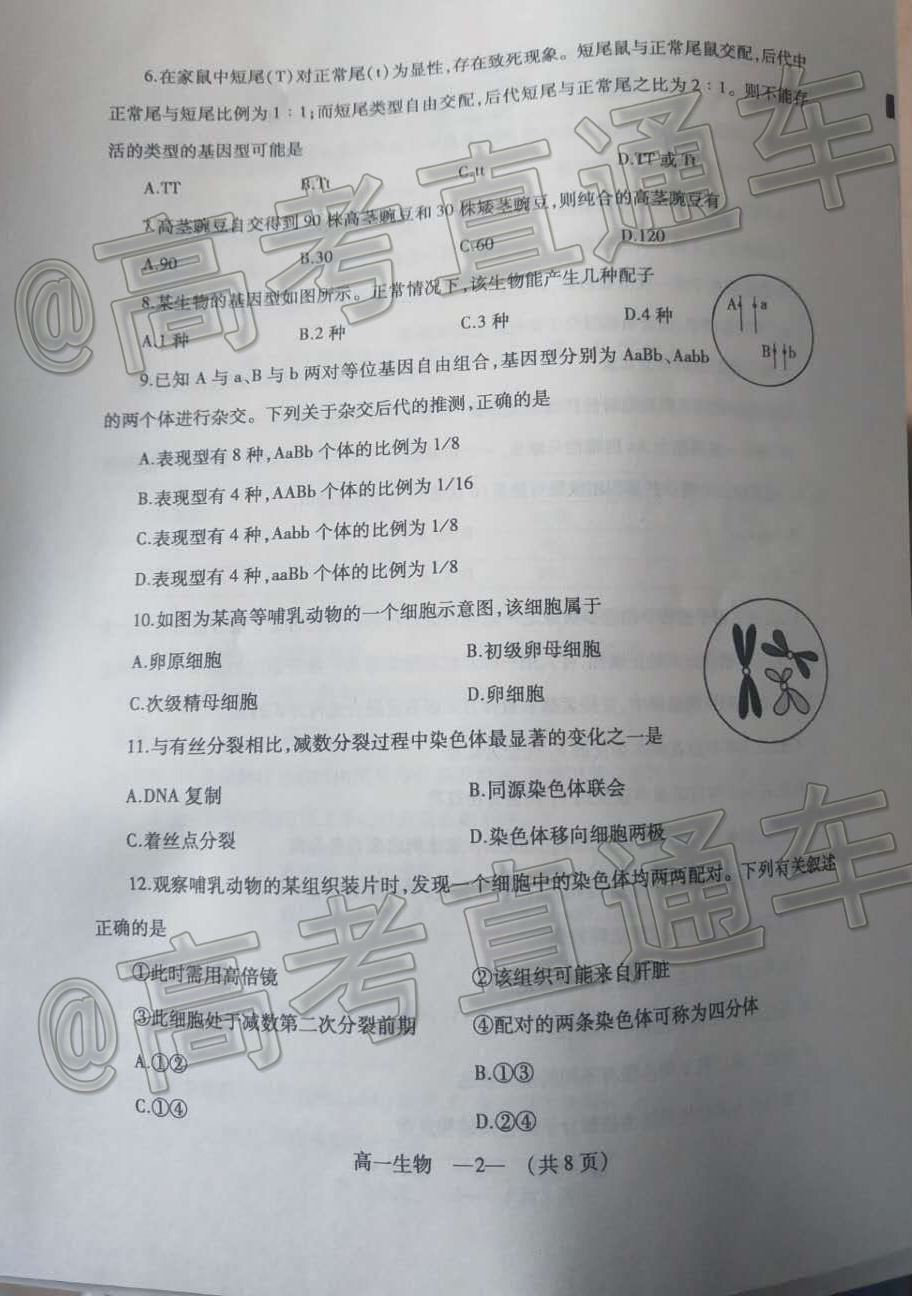 6.在家鼠中短尾(T)对正常尾(t)为显性,存在致死现象。短尾鼠与正常尾鼠交配,后代中
正常尾与短尾比例为1∶1;而短尾类型自由交配,后代短尾与正常尾之比为2∶1。则不能存
活的类型的基因型可能是
A.TT B.Tt C.tt D.TT或Tt
7.高茎豌豆自交得到90株高茎豌豆和30株矮茎豌豆,则纯合的高茎豌豆有
A.90 B.30 C.60 D.120
8.某生物的基因型如图所示。正常情况下,该生物能产生几种配子
A.1种 B.2种 C.3种 D.4种
A a
B b
9.已知A与a、B与b两对等位基因自由组合,基因型分别为AaBb、Aabb
的两个体进行杂交。下列关于杂交后代的推测,正确的是
A.表现型有8种,AaBb个体的比例为1/8
B.表现型有4种,AABb个体的比例为1/16
C.表现型有4种,Aabb个体的比例为1/8
D.表现型有4种,aaBb个体的比例为1/8
10.如图为某高等哺乳动物的一个细胞示意图,该细胞属于
A.卵原细胞 B.初级卵母细胞
C.次级精母细胞 D.卵细胞
11.与有丝分裂相比,减数分裂过程中染色体最显著的变化之一是
A.DNA复制 B.同源染色体联会
C.着丝点分裂 D.染色体移向细胞两极
12.观察哺乳动物的某组织装片时,发现一个细胞中的染色体均两两配对。下列有关叙述
正确的是
①此时需用高倍镜 ②该组织可能来自肝脏
③此细胞处于减数第二次分裂前期 ④配对的两条染色体可称为四分体
A.①② B.①③
C.①④ D.②④
高一生物 —2— (共8页)
@高考直通车
@高考直通车